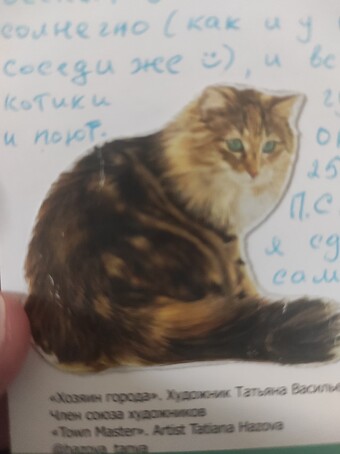 солнечно (как и у
соседи же ☺), и вс
котики
и поют.
25
П.С.
я сд
сам
«Хозяин города». Художник Татьяна Василье
Член союза художников
«Town Master». Artist Tatiana Hazova
@hazova_tanya